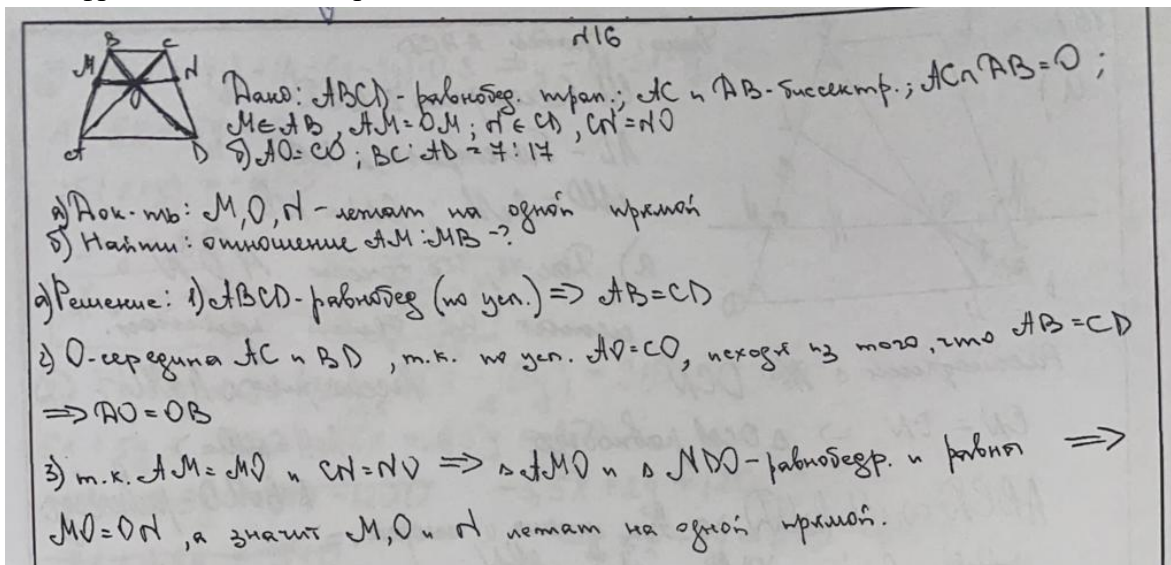 №16
B C
M N
O
A D
Дано: ABCD - равнобед. трап.; AC и DB - биссектр.; AC∩DB=O;
M∈AB, AM=OM; N∈CD, CN=NO
б) AO=CO; BC:AD=7:17
а) Док-ть: M, O, N - лежат на одной прямой
б) Найти: отношение AM:MB-?
а) Решение: 1) ABCD - равнобед (по усл.) => AB=CD
2) O-середина AC и BD, т.к. по усл. AO=CO, исходя из того, что AB=CD
=> DO=OB
3) т.к. AM=MO и CN=NO => △AMO и △NDO - равнобедр. и равны =>
MO=ON, а значит M, O и N лежат на одной прямой.